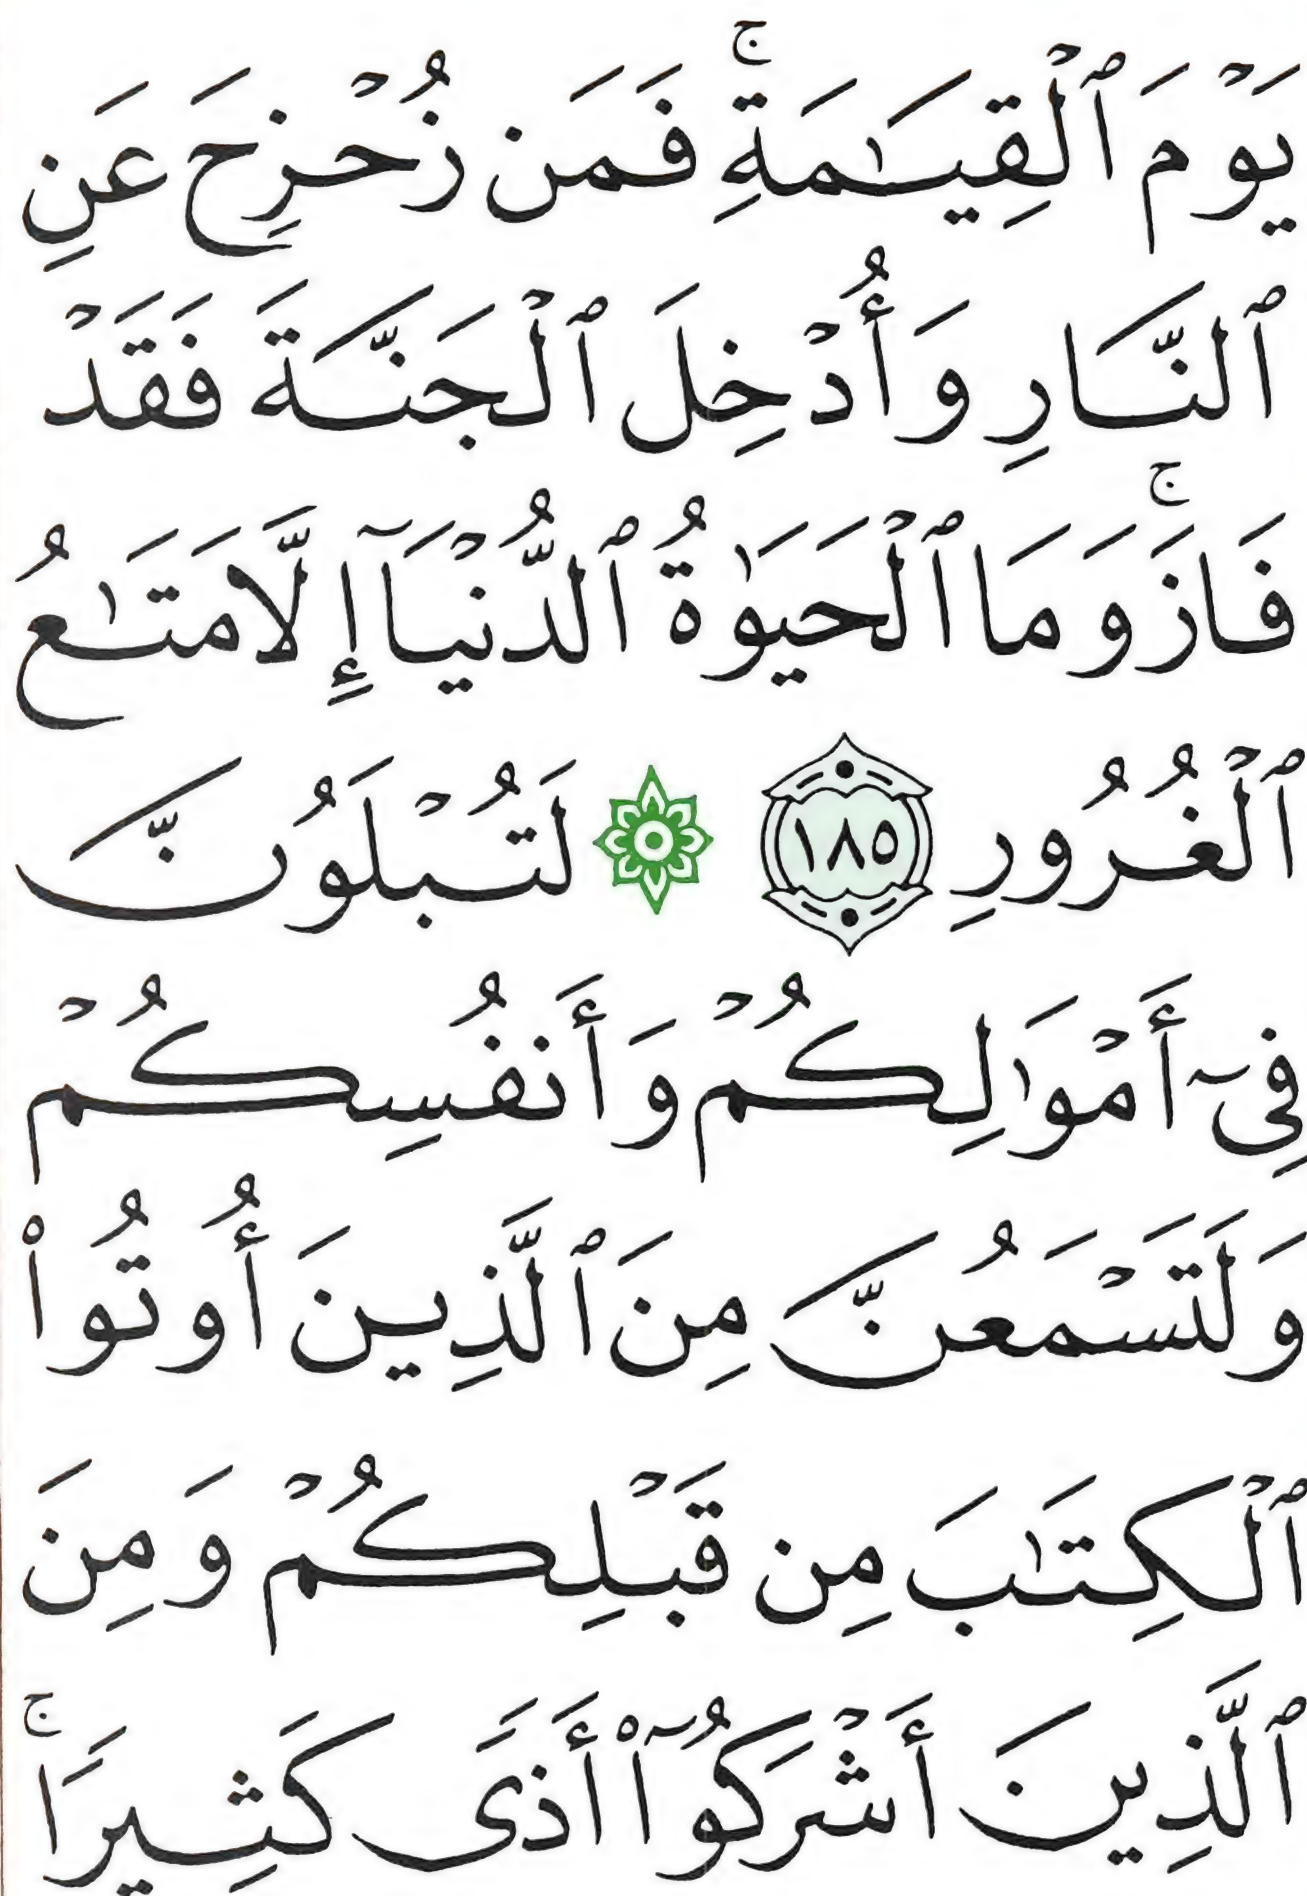 يَوْمَ ٱلْقِيَـٰمَةِ ۖ فَمَن زُحْزِحَ عَنِ
ٱلنَّارِ وَأُدْخِلَ ٱلْجَنَّةَ فَقَدْ
فَازَ ۚ وَمَا ٱلْحَيَوٰةُ ٱلدُّنْيَآ إِلَّا مَتَـٰعُ
ٱلْغُرُورِ ١٨٥ ۞ لَتُبْلَوُنَّ
فِىٓ أَمْوَٰلِكُمْ وَأَنفُسِكُمْ
وَلَتَسْمَعُنَّ مِنَ ٱلَّذِينَ أُوتُوا۟
ٱلْكِتَـٰبَ مِن قَبْلِكُمْ وَمِنَ
ٱلَّذِينَ أَشْرَكُوٓا۟ أَذًى كَثِيرًا ۚ